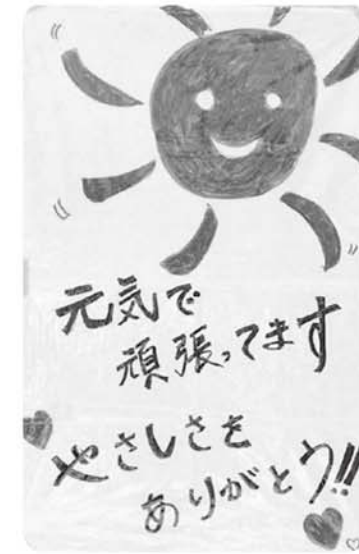 元気で
頑張ってます
やさしさを
ありがとう!!